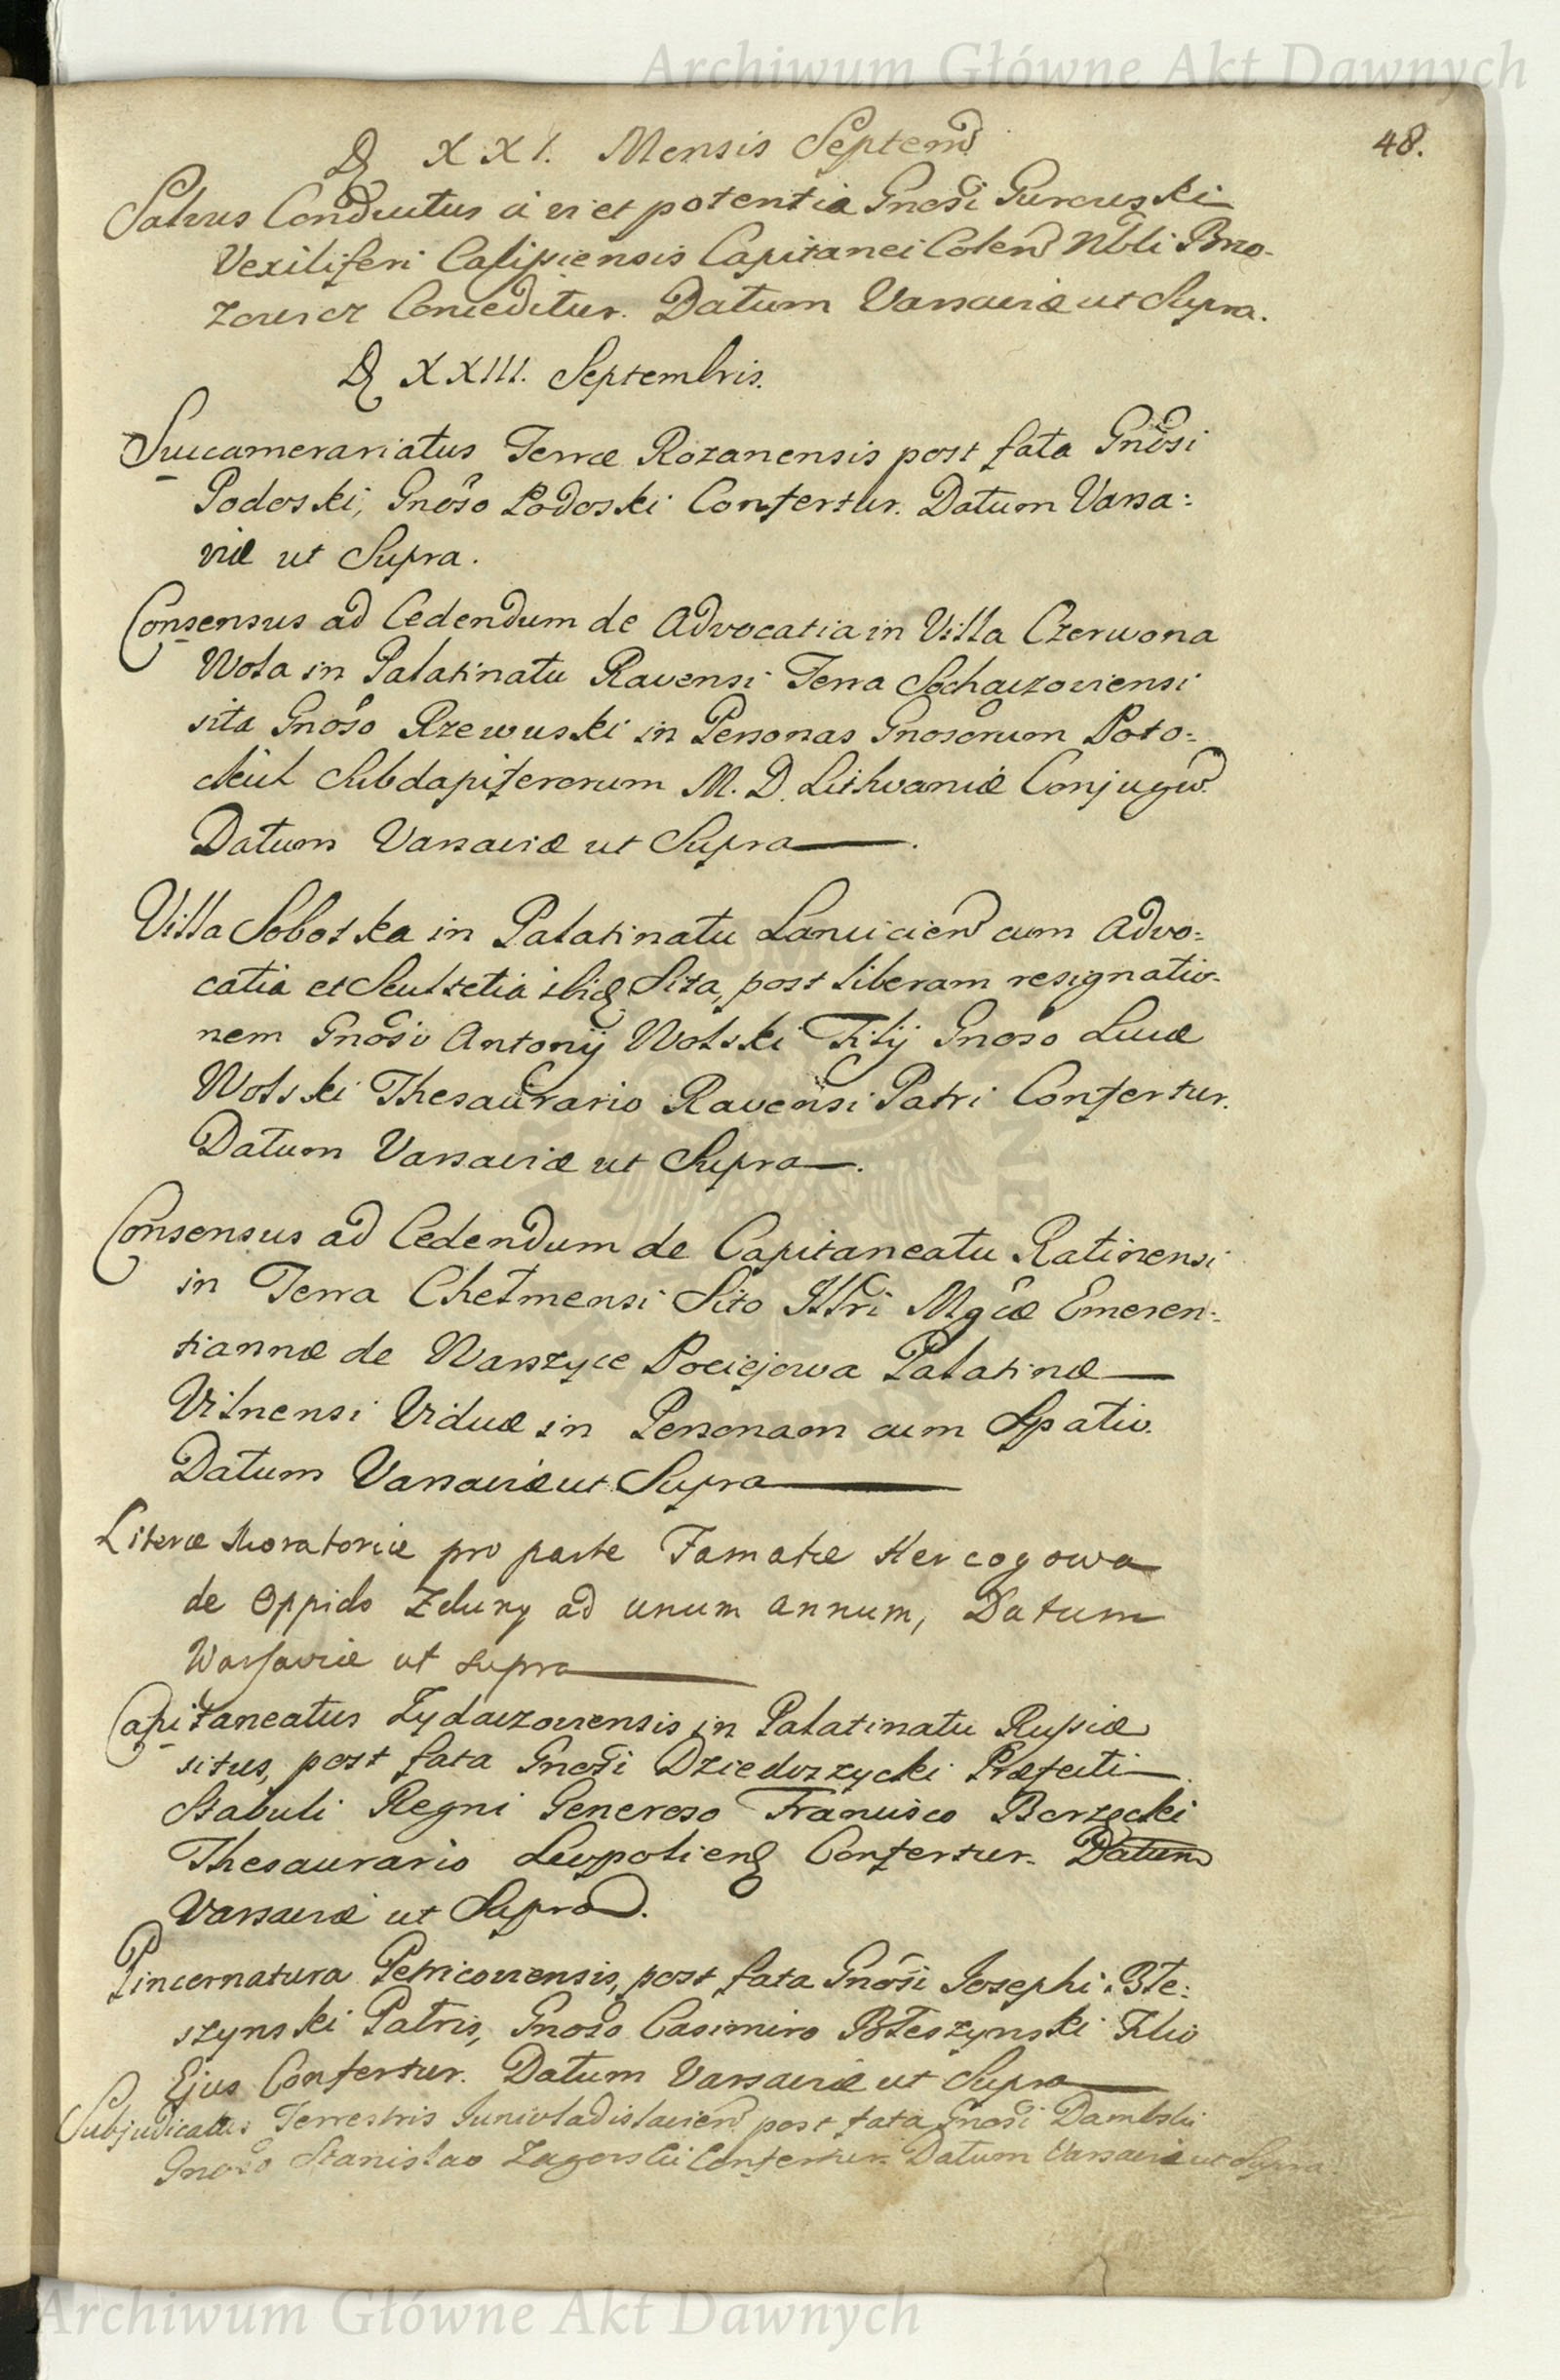 Archiwum Główne Akt Dawnych
48.
D XXI. Mensis Septemb
Salvus Conductus à vi et potentia Gnosi Gurowski
Vexiliferi Calisiensis Capitanei Colen Nbli Brzo-
zowicz Conceditur. Datum Varsaviæ ut Supra.
D XXIII. Septembris.
Succamerariatus Terræ Rozanensis post fata Gnosi
Podoski, Gnoso Podoski Confertur. Datum Varsa:
viæ ut Supra.
Consensus ad Cedendum de Advocatia in Villa Czerwona
Wola in Palatinatu Ravensi Terra Sochaczoviensi
sita Gnoso Rzewuski in Personas Gnosorum Poto=
ckich Subdapiferorum M. D. Lithvaniæ Conjugum
Datum Varsaviæ ut Supra.
Villa Sobotka in Palatinatu Lancicien cum Advo=
catia et Scultetia ibid Sita, post liberam resignatio-
nem Gnosi Antonij Wolski Filij Gnoso Lucæ
Wolski Thesaurario Ravensi Patri Confertur.
Datum Varsaviæ ut Supra.
Consensus ad Cedendum de Capitaneatu Ratinensi
in Terra Chelmensi Sito Illri Mgcæ Emeren=
tiannæ de Warszyce Pociejowa Palatinæ
Vilnensi Viduæ in Personam cum Spatio.
Datum Varsaviæ ut Supra
Literæ Moratoriæ pro parte Famatæ Hercogowa
de Oppido Zduny ad unum annum, Datum
Warsaviæ ut supra
Capitaneatus Zydaczoviensis in Palatinatu Russiæ
situs, post fata Gnosi Dzieduszycki Præfecti
Stabuli Regni Generoso Francisco Borzęcki
Thesaurario Leopolien Confertur. Datum
Varsaviæ ut Supra.
Pincernatura Petricoviensis, post fata Gnosi Josephi Błe:
szynski Patris, Gnoso Casimiro Błeszynski Filio
Ejus Confertur. Datum Varsaviæ ut Supra
Subjudicatus Terrestris Junivladislavien post fata Gnosi Dambski
Gnoso Stanislao Zagorski Confertur. Datum Varsaviæ ut Supra.
Archiwum Główne Akt Dawnych